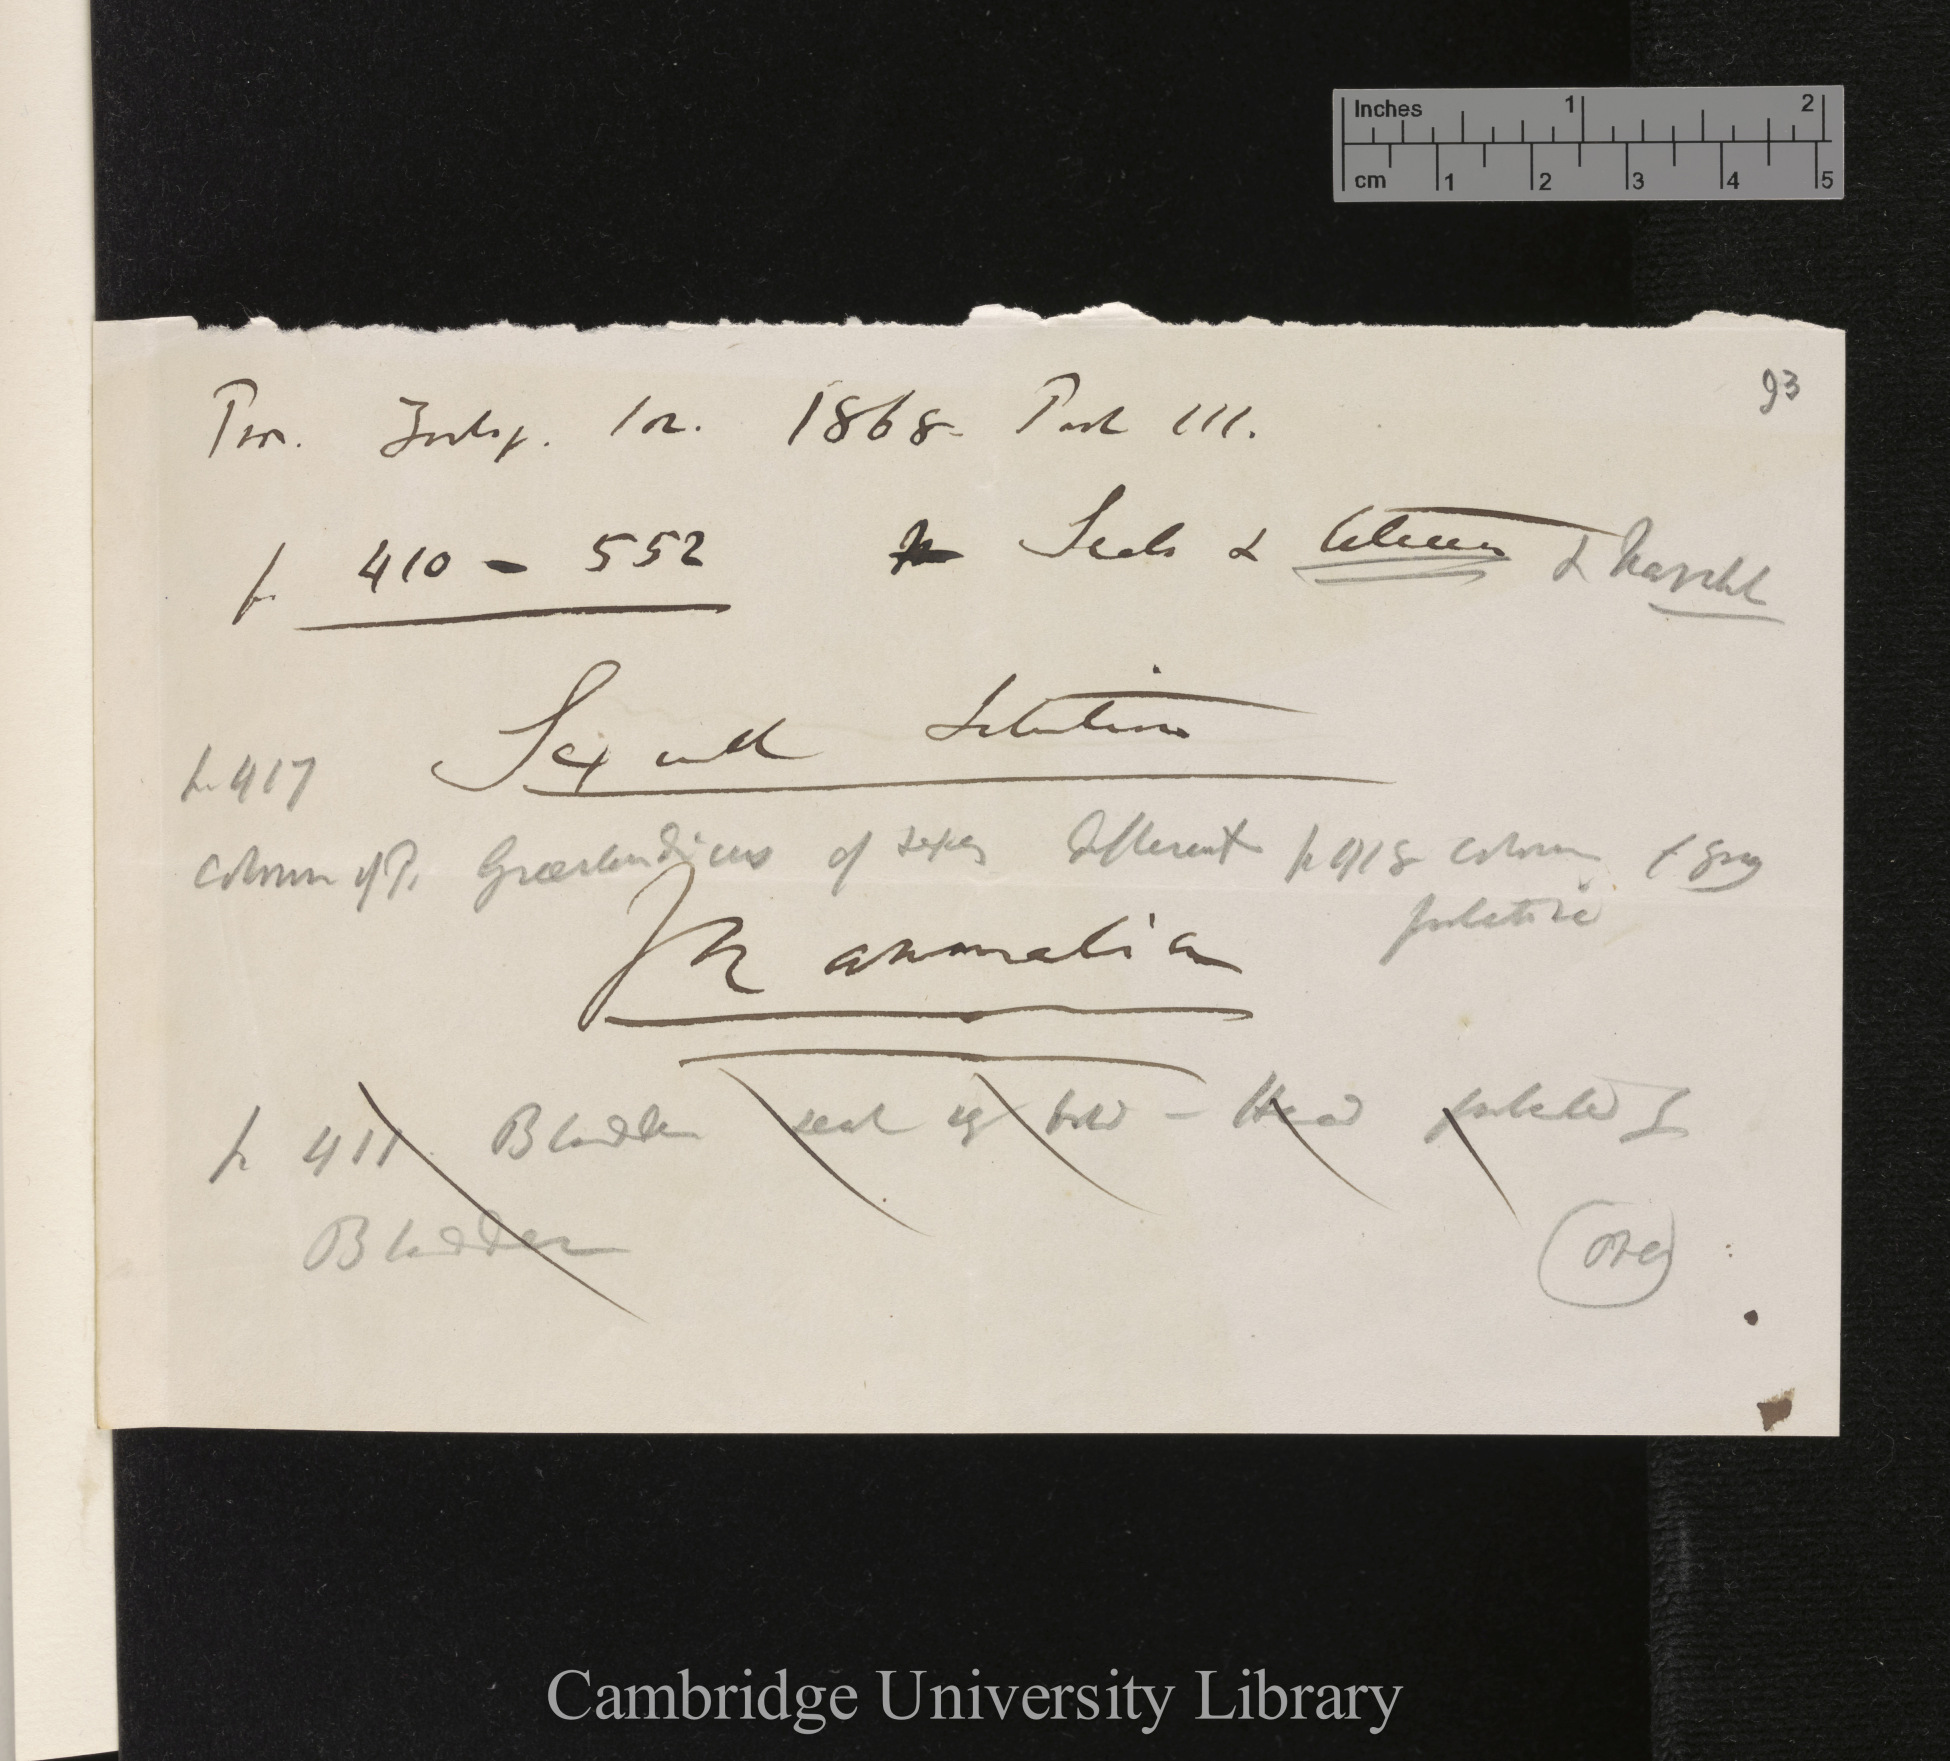 Inches 1 2
cm 1 2 3 4 5
93
Proc. Zoolog. Soc. 1868- Part III.
p. 410 - 552 Seals & Cetacea & Narwhal
Sexual Selection
p. 417
Colour of P. Groenlandicus of sexes different p 418 colour
Mammalia
p 411 Bladder seal - Head
Bladder
over
Cambridge University Library